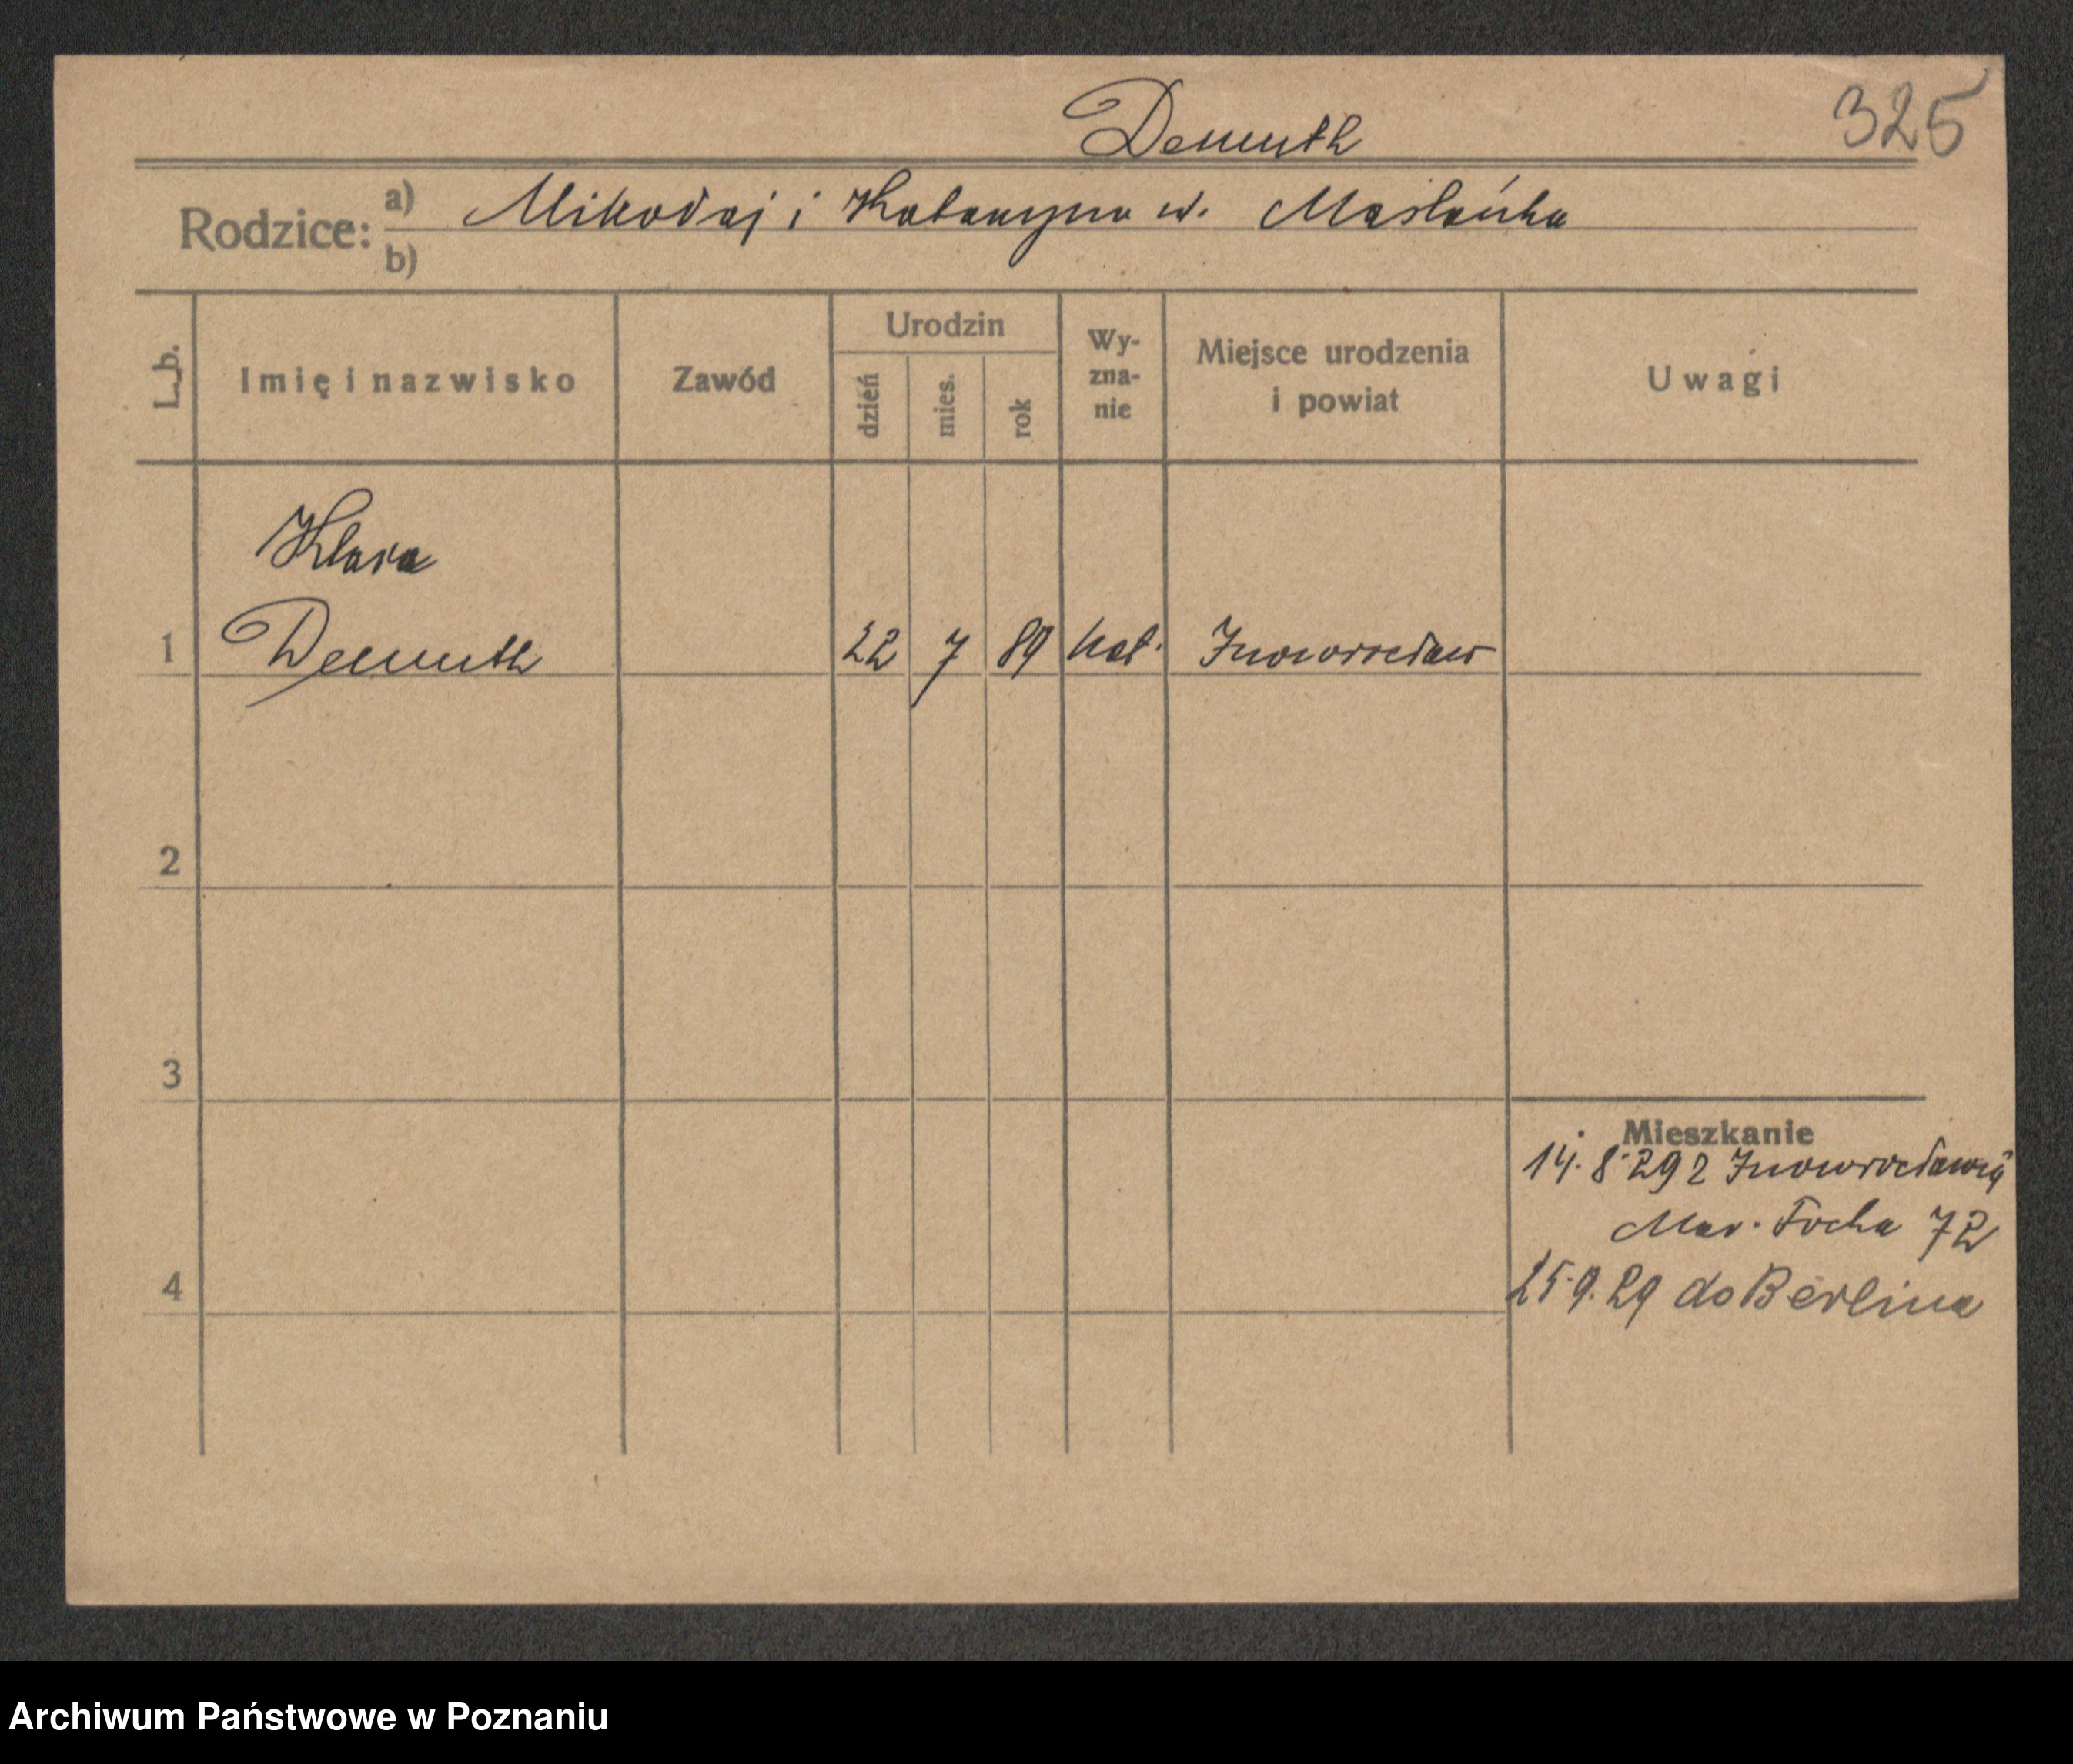 Demuth 325
Rodzice: a) Mikołaj i Katarzyna u. Maślańka
b)
L. b. Imię i nazwisko Zawód Urodzin dzień mies. rok Wyznanie Miejsce urodzenia i powiat Uwagi
Klara
1 Demuth 22 7 89 kat. Inowrocław
2
3
Mieszkanie
14. 8. 29 z Inowrocławia
Mar. Focha 72
4 25. 9. 29 do Berlina
Archiwum Państwowe w Poznaniu